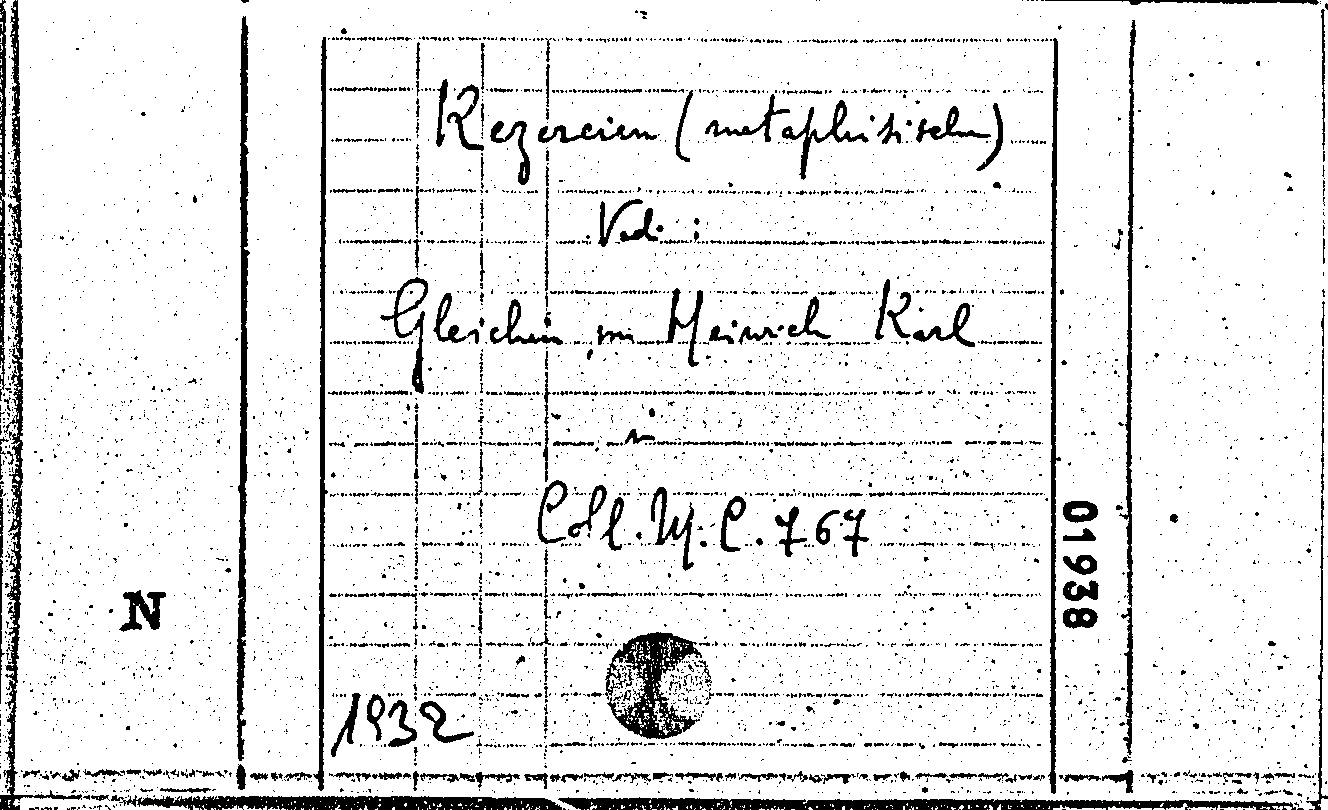 Kezereien (metaphisischen)
Vedi:
Gleichen, von Heinrich Karl
Coll. M. C. 767
1932
N
01938